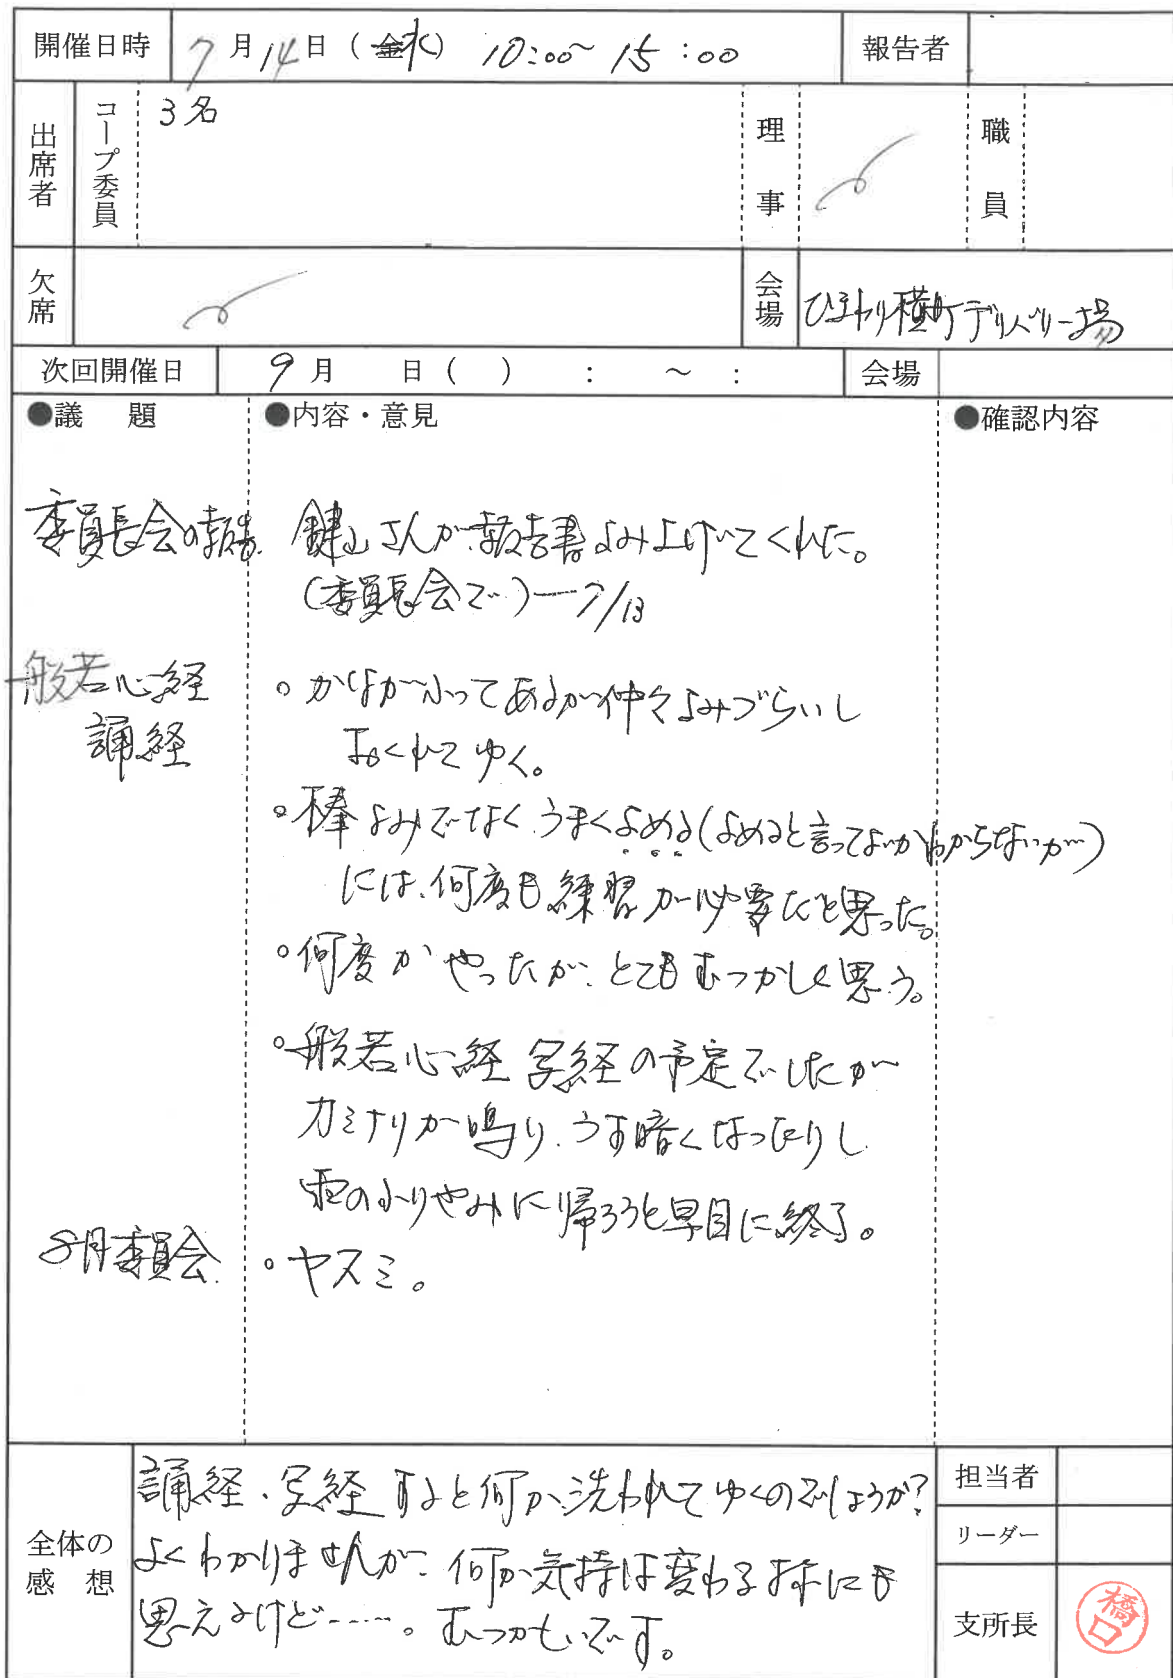 開催日時 7月14日(金水) 10:00~15:00 報告者
出席者 コープ委員 3名 理事 職員
欠席 会場 ひまわり横町デリバリー場
次回開催日 9月 日( ) : ~ : 会場
●議 題 ●内容・意見 ●確認内容
委員長会の報告 鍵山さんが報告書よみ上げてくれた。
(委員長会で)ー7/13
般若心経 ○かながふってあるが仲々よみづらいし
誦経 おくれてゆく。
○棒よみでなくうまくよめる(よめると言ってよいかわからないが)
には、何度も練習が必要だと思った。
○何度かやったが、とてもむつかしく思う。
○般若心経 写経の予定でしたが
カミナリが鳴り、うす暗くなったりし
雨のふりやみに帰ろうと早目に終了。
8月委員会 ○ヤスミ。
全体の感想
誦経、写経すると何か洗われてゆくのでしょうか?
よくわかりませんが、何か気持は変わる様にも
思えるけど……。むつかしいです。
担当者
リーダー
支所長 橋口